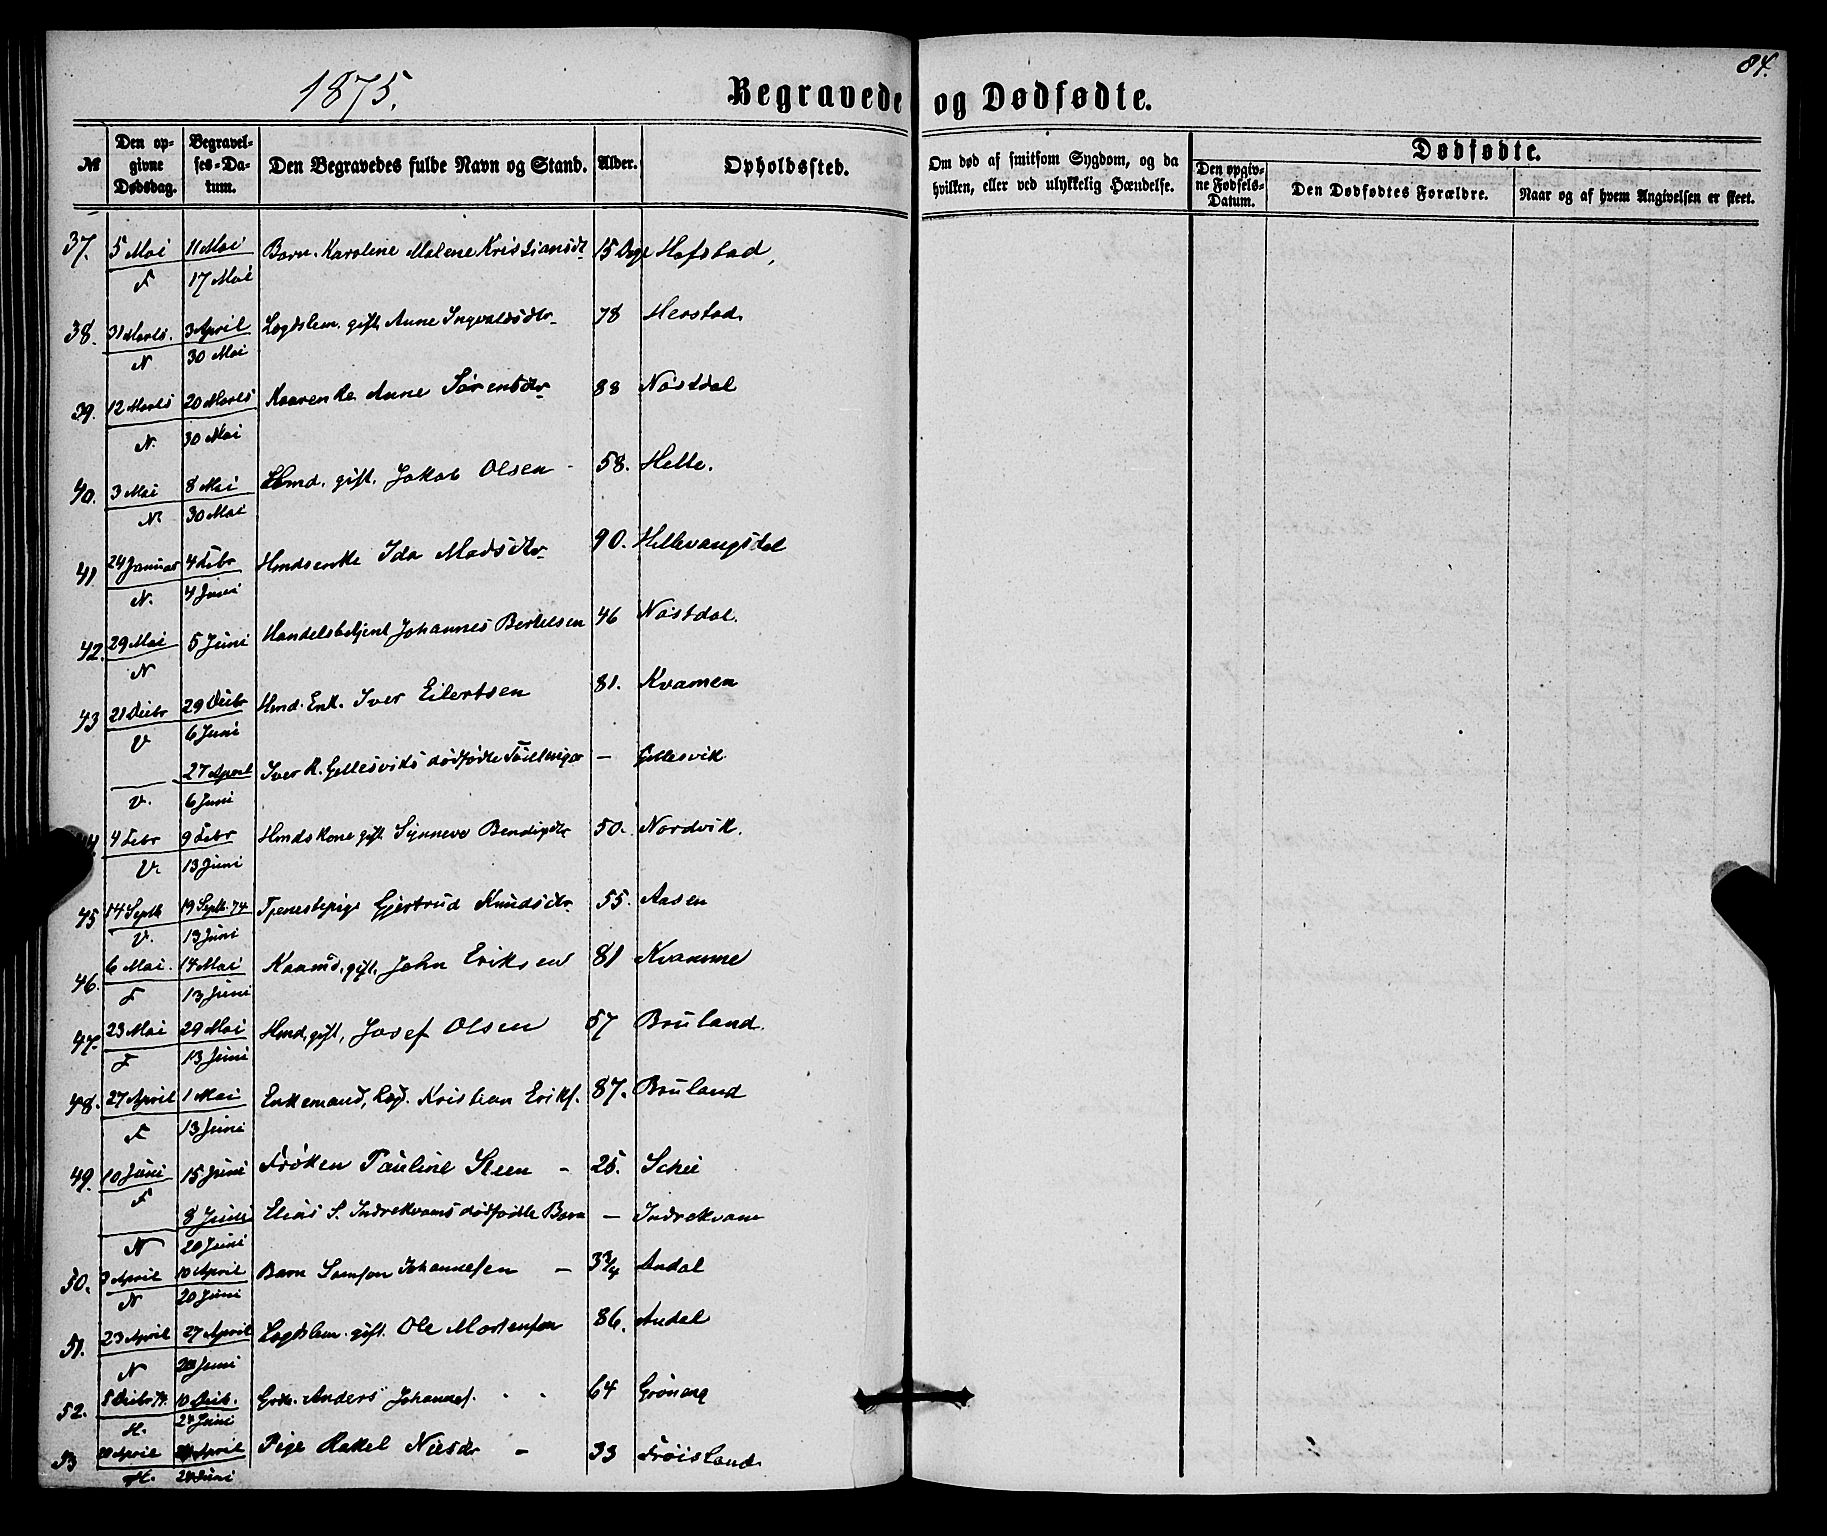 1875.
Begravede og Dødfødte.
84.
№
Den opgivne Dødsdag.
Begravelses-Datum.
Den Begravedes fulde Navn og Stand.
Alder.
Opholdssted.
Om død af smitsom Sygdom, og da hvilken, eller ved ulykkelig Hændelse.
Dødfødte.
Den opgivne Fødsels-Datum.
Den Dødfødtes Forældre.
Naar og af hvem Angivelsen er skeet.
37. 5 Mai 11 Mai Barn Karoline Malene Kristiansdr 15 Dage Hafstad,
F 17 Mai
38. 31 Marts. 3 April Lægdslem. gift Anne Ingvaldsdtr 78 Herstad.
N 30 Mai
39. 12 Marts 20 Marts Kaarenke Anne Sørensdtr 88 Nøstdal
N. 30 Mai
40. 3 Mai 8 Mai Hmd. gift. Jakob Olsen - 58. Helle.
N. 30 Mai
41. 24 Januar 4 Febr Hmdsenke Ida Madsdtr 90. Hellevangsdal
N. 4 Juni
42. 29 Mai 5 Juni Handelsbetjent Johannes Bertelsen 46 Nøstdal.
N
43 21 Decbr 29 Decbr Hmd. Enk. Iver Eilertsen 81. Kvamen
V 6 Juni
27 April Iver R. Gellesviks dødfødte Tvillinger - Gellesvik
V. 6 Juni
44. 4 Febr 9 Febr Hmdskone gift Synneve Bendigdtr 50. Nordvik.
V. 13 Juni
45 14 Septb 19 Septb. 74 Tjenestepige Gjertrud Knudsdtr 55. Aasen
V. 13 Juni
46. 6 Mai. 14 Mai Kaarmd. gift. John Eriksen 81 Kvamme
F 13 Juni
47. 23 Mai 29 Mai Hmd. gift, Josef Olsen 57 Bruland.
F 13 Juni
48. 27 April 1 Mai Enkemand, Lægd. Kristian Eriks. 87. Bruland
F 13 Juni
49. 10 Juni 15 Juni Frøken Pauline Steen - 25. Schei
F
8 Juni Elias S. Indrekvams dødfødte Barn - Indrekvam
N 20 Juni
50. 3 April 10 April Barn Samson Johannesen - 3 3/4 Andal
N 20 Juni
51. 23 April 27 April Lægdslem. gift. Ole Mortensen 86. Andal
N 20 Juni
52. 5 Decbr 74. 10 Decb. Grdm. Anders Johannes. - - 64 Grøneng
H. 24 Juni
53 April April Pige Rakel Nilsdr - 33 Frøisland.
H. 24 Juni